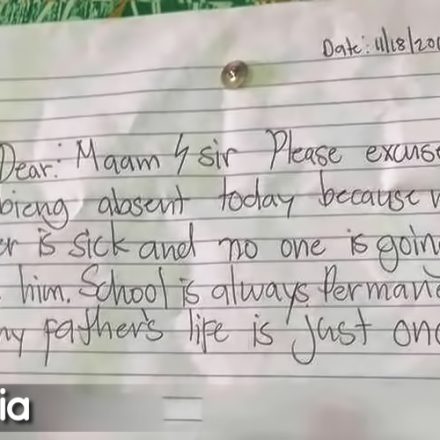 Date: 11/18/20
Dear: Maam & sir Please excus
bieng absent today because
er is sick and no one is goin
him. School is always Permane
my father's life is just one
ia